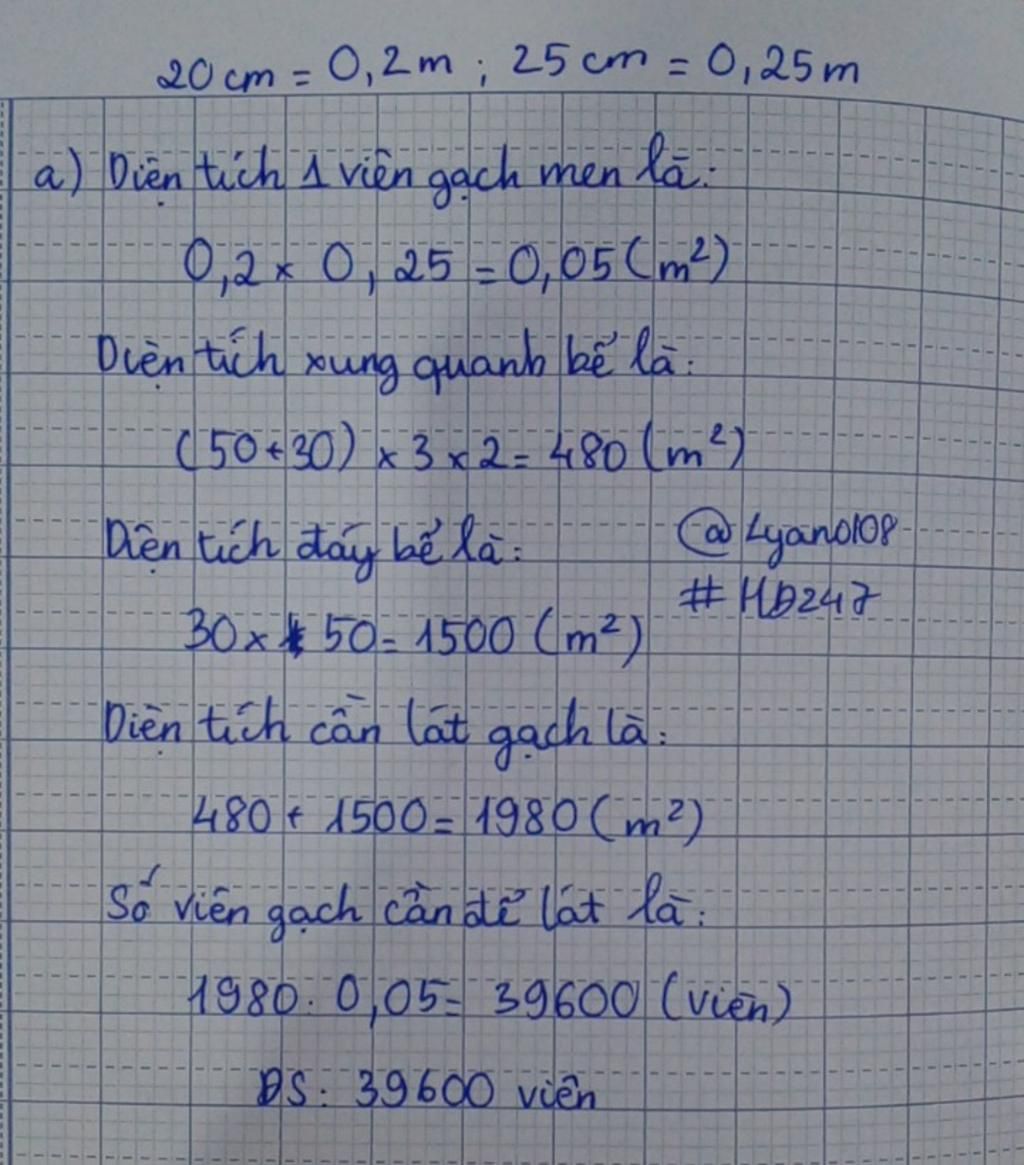 20 cm = 0,2 m ; 25 cm = 0,25 m
a) Diện tích 1 viên gạch men là:
0,2 x 0,25 = 0,05 (m²)
Diện tích xung quanh bể là:
(50+30) x 3 x 2 = 480 (m²)
Diện tích đáy bể là:
@Lyan0108
#HD247
30 x 50 = 1500 (m²)
Diện tích cần lát gạch là:
480 + 1500 = 1980 (m²)
Số viên gạch cần để lát là:
1980 : 0,05 = 39600 (viên)
ĐS: 39600 viên